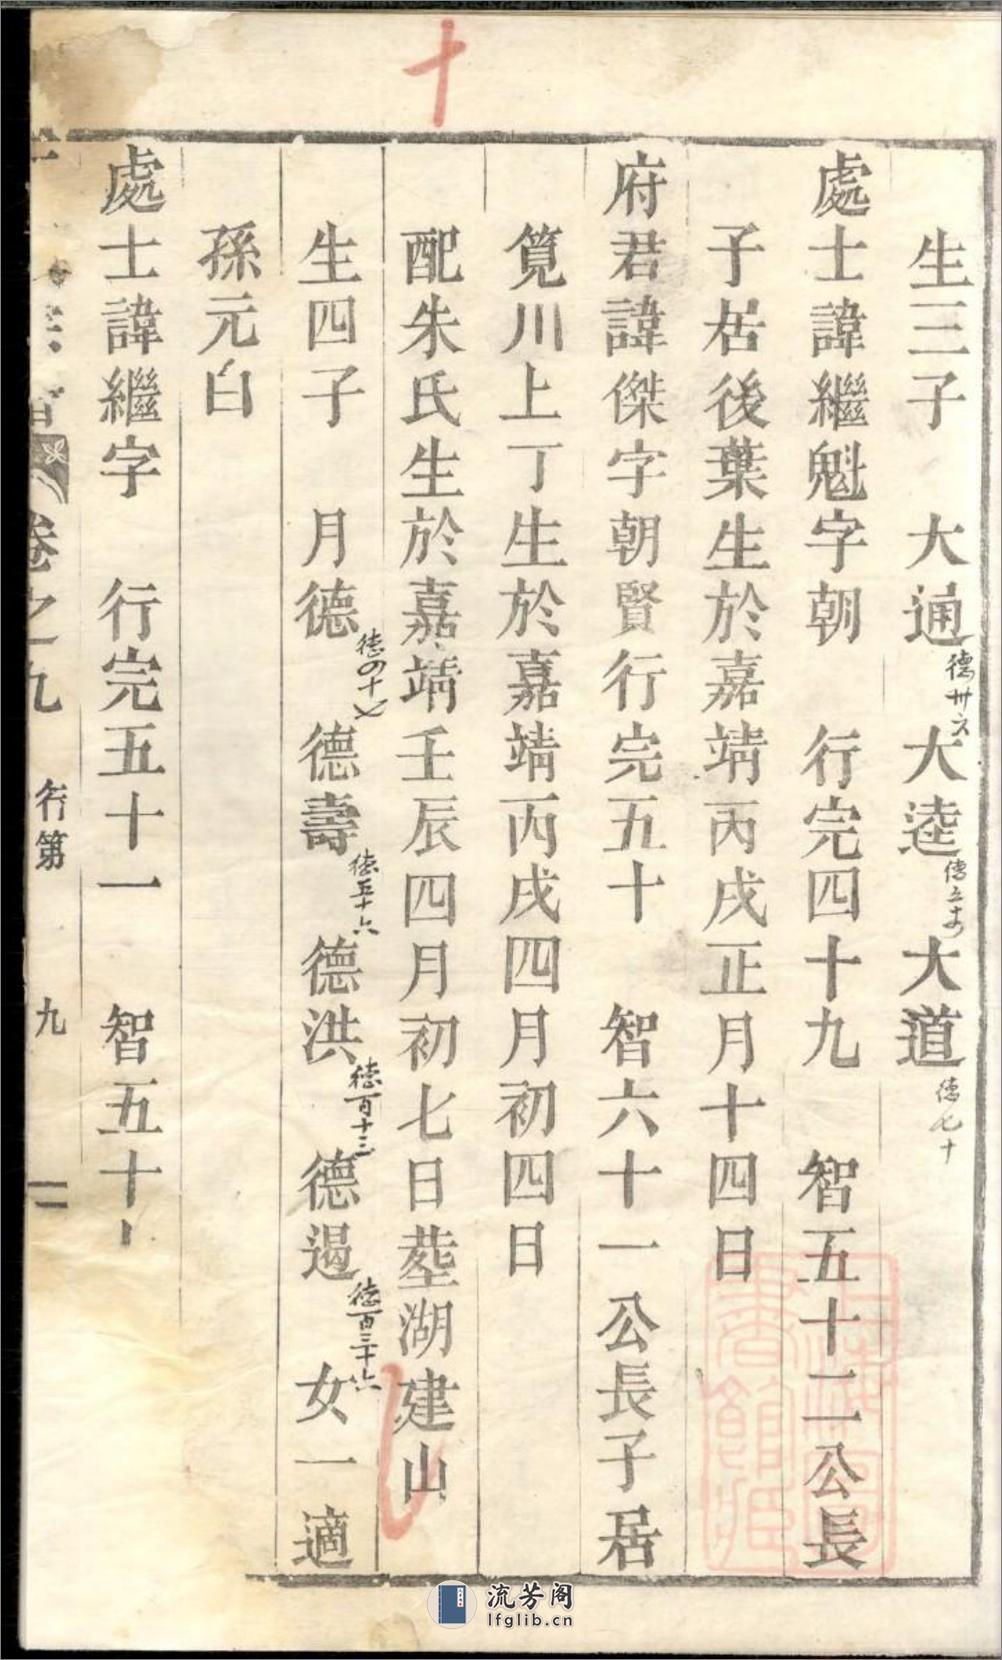 十
生三子　大通　大逵　大道
德卅六
德七十
處士諱繼魁字朝　行完四十九　智五十二公長
子居後葉生於嘉靖丙戌正月十四日
府君諱傑字朝賢行完五十　智六十一公長子居
筧川上丁生於嘉靖丙戌四月初四日
配朱氏生於嘉靖壬辰四月初七日塟湖建山
生四子　月德　德壽　德洪　德遏　女一適
德四十七
德五十六
德百十三
德百三十六
孫元白
處士諱繼字　行完五十一　智五十
卷之九　行第　九
流芳阁
lfglib.cn